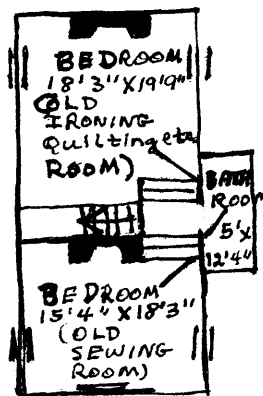 BEDROOM
18'3" X 19'9"
(OLD
IRONING
Quilting etc
ROOM)
BATH
ROOM
5' X
12'4"
BEDROOM
15'4" X 18'3"
(OLD
SEWING
ROOM)